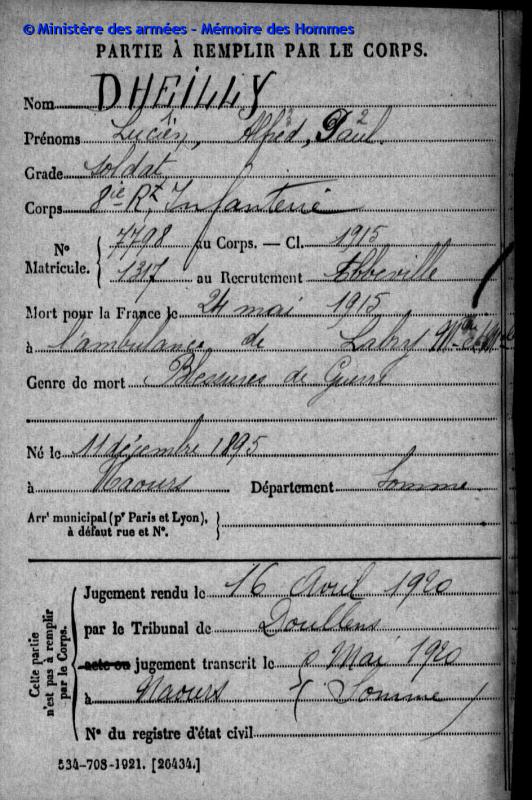 © Ministère des armées - Mémoire des Hommes
PARTIE À REMPLIR PAR LE CORPS.
Nom DHEILLY
Prénoms Lucien, Alfred, Paul 2
Grade Soldat
Corps 8ie Rt Infanterie
N° Matricule. { 7798 au Corps. — Cl. 1915
1317 au Recrutement Abbeville
Mort pour la France le 24 mai 1915
à l'ambulance de Labry
Genre de mort Blessures de Guerre
Né le 11 décembre 1895
à Naours Département Somme
Arrt municipal (pr Paris et Lyon), à défaut rue et N°. }
Cette partie n'est pas à remplir par le Corps.
Jugement rendu le 16 Avril 1920
par le Tribunal de Doullens
acte ou jugement transcrit le Mai 1920
à Naours (Somme)
N° du registre d'état civil
534-708-1921. [26434.]